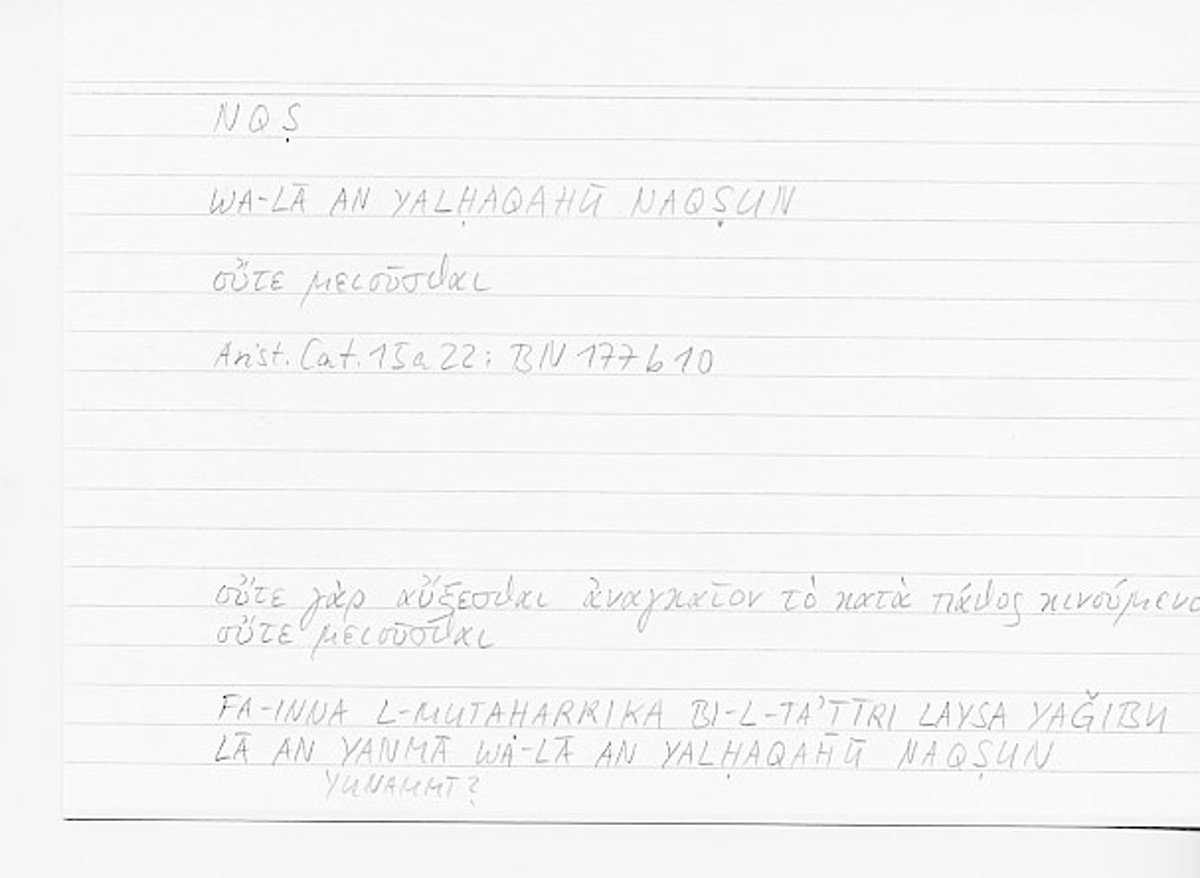 NQṢ
WA-LĀ AN YALḤAQAHŪ NAQṢUN
οὔτε μειοῦσθαι
Arist. Cat. 15a22; BN 177b10
οὔτε γὰρ αὔξεσθαι ἀναγκαῖον τὸ κατὰ πάθος κινούμενο
οὔτε μειοῦσθαι
FA-INNA L-MUTAHARRIKA BI-L-TA’ṮĪRI LAYSA YAǦIBU
LĀ AN YANMĀ WA-LĀ AN YALḤAQAHŪ NAQṢUN
YUNAMMĪ?